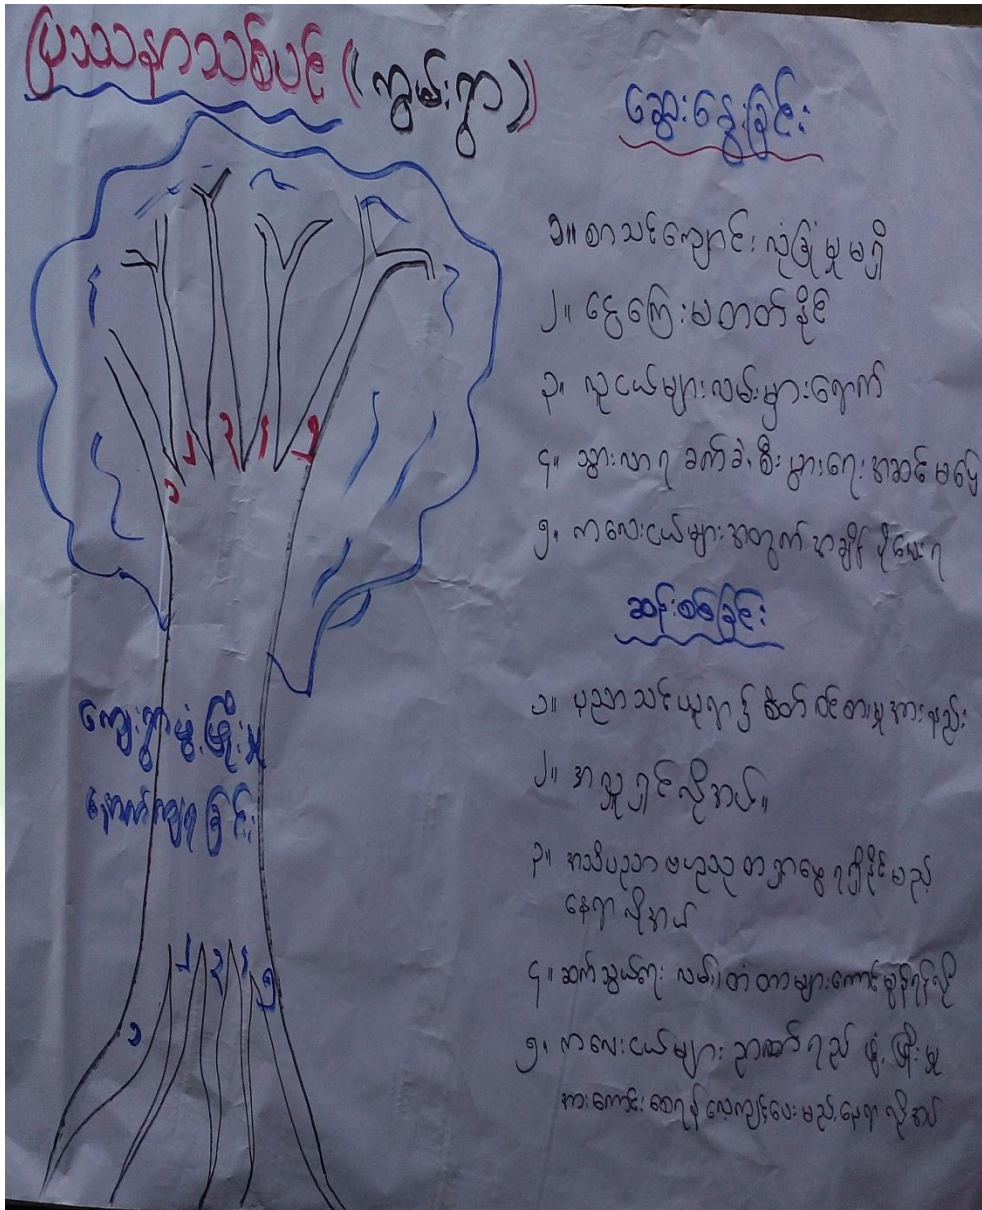 ပြဿနာသစ်ပင် ((ကွမ်းရွာ))
ဆွေးနွေးခြင်း
၁။ စာသင်ကျောင်း လုံခြုံမှု မရှိ
၂။ ငွေကြေး မတတ်နိုင်
၃။ လူငယ်များ လမ်းမှားရောက်
၄။ သွားလာရ ခက်ခဲ၊ စီးပွားရေး အဆင်မပြေ
၅။ ကလေးငယ်များ အတွက် အချိန် ပိုပေးရ
ဆန်းစစ်ခြင်း
၁။ ပညာသင်ယူရာ၌ စိတ်ဝင်စားမှု အားနည်း
၂။ အလှူရှင် လိုအပ်။
၃။ အသိပညာ ဗဟုသုတ ရှာမွေ ရရှိနိုင်မည့်
နေရာ လိုအပ်
၄။ ဆက်သွယ်ရေး လမ်း၊ တံတားများ ကောင်းမွန်ရန်လို
၅။ ကလေးငယ်များ ဉာဏ်ရည် ဖွံ့ဖြိုးမှု
အားကောင်းစေရန် လေ့ကျင့်ပေးမည့် နေရာ လိုအပ်
ကျေးရွာဖွံ့ဖြိုးမှု
နောက်ကျရခြင်း
၁ ၂ ၃ ၄ ၅
၁ ၂ ၃ ၄ ၅